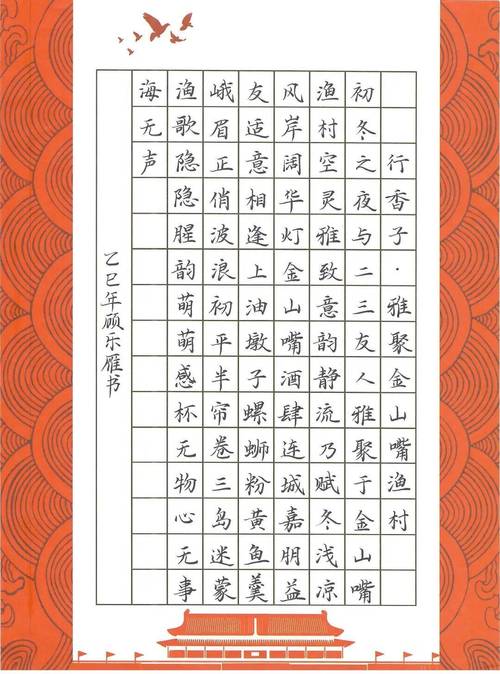 行香子·雅聚金山嘴渔村
初冬之夜与二三友人雅聚于金山嘴
渔村空灵雅致意韵静流乃赋冬浅凉
风岸阔华灯金山嘴酒肆连城嘉朋益
友适意相逢上油墩子螺蛳粉黄鱼羹
峨眉正俏波浪初平半帘卷三岛迷蒙
渔歌隐隐腥韵萌萌感杯无物心无事
海无声
乙巳年顾乐雁书